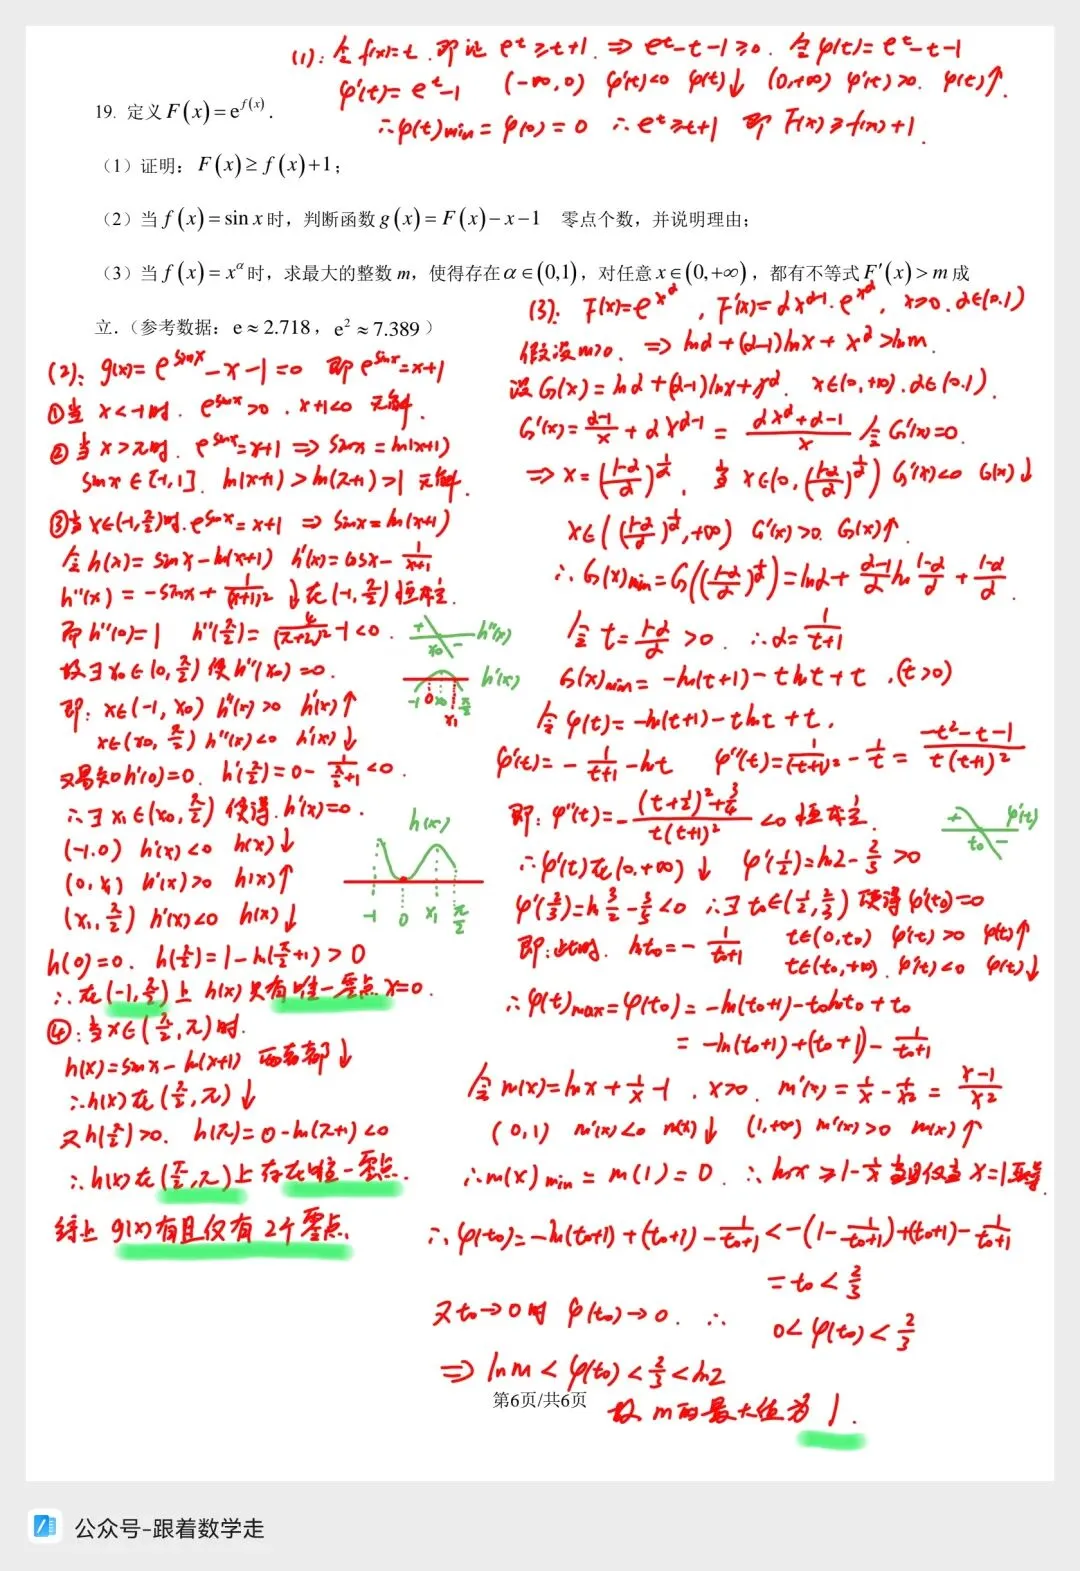 (1): 令f(x)=t. 即证 e^t≥t+1. ⇒ e^t-t-1≥0. 令φ(t)=e^t-t-1
φ'(t)=e^t-1 (-∞,0) φ'(t)<0 φ(t)↓ (0,+∞) φ'(t)>0. φ(t)↑.
∴φ(t)min=φ(0)=0 ∴e^t≥t+1 即 F(x)≥f(x)+1.
19. 定义F(x)=e^{f(x)}.
(1)证明: F(x)≥f(x)+1;
(2)当f(x)=sin x时,判断函数g(x)=F(x)-x-1 零点个数,并说明理由;
(3)当f(x)=x^α时,求最大的整数m,使得存在α∈(0,1),对任意x∈(0,+∞),都有不等式F'(x)>m成
立.(参考数据: e≈2.718, e²≈7.389)
(2): g(x)=e^{sinx}-x-1=0 即e^{sinx}=x+1
①当 x<-1时. e^{sinx}>0. x+1<0 无解.
②当x>π时. e^{sinx}=x+1 ⇒ sinx=ln(x+1)
sinx∈[-1,1]. ln(x+1)>ln(π+1)>1 无解.
③当x∈(-1,π/2)时. e^{sinx}=x+1 ⇒ sinx=ln(x+1)
令h(x)=sinx-ln(x+1) h'(x)=cosx-1/(x+1)
h''(x)=-sinx+1/(x+1)² ↓在(-1,π/2)恒成立.
而h''(0)=1 h''(π/2)=4/(π+2)²-1<0.
故∃x₀∈(0,π/2)使h''(x₀)=0.
即: x∈(-1,x₀) h''(x)>0 h'(x)↑
x∈(x₀,π/2) h''(x)<0 h'(x)↓
又易知h'(0)=0. h'(π/2)=0-1/(π/2+1)<0.
∴∃x₁∈(x₀,π/2)使得.h'(x)=0.
(-1.0) h'(x)<0 h(x)↓
(0,x₁) h'(x)>0 h(x)↑
(x₁,π/2) h'(x)<0 h(x)↓
h(0)=0. h(π/2)=1-ln(π/2+1)>0
∴在(-1,π/2)上 h(x)只有唯一零点x=0.
④:当x∈(π/2,π)时.
h(x)=sinx-ln(x+1) 两者都↓
∴h(x)在(π/2,π)↓
又h(π/2)>0. h(π)=0-ln(π+1)<0
∴h(x)在(π/2,π)上存在唯一零点.
综上 g(x)有且仅有2个零点.
+ - x₀ h''(x)
-1 0 x₀ x₁ π/2 h'(x)
h(x)
-1 0 x₁ π/2
(3): F(x)=e^{x^α}, F'(x)=αx^{α-1}·e^{x^α}, x>0. α∈(0.1)
假设m>0. ⇒ lnα+(α-1)lnx+x^α>lnm.
设G(x)=lnα+(α-1)lnx+x^α. x∈(0,+∞).α∈(0.1).
G'(x)=(α-1)/x+αx^{α-1}=(αx^α+α-1)/x 令G'(x)=0.
⇒x=((1-α)/α)^{1/α}. 当x∈(0,((1-α)/α)^{1/α}) G'(x)<0 G(x)↓
x∈(((1-α)/α)^{1/α},+∞) G'(x)>0. G(x)↑.
∴G(x)min=G(((1-α)/α)^{1/α})=lnα+(α-1)/α ln (1-α)/α+(1-α)/α.
令t=(1-α)/α>0. ∴α=1/(t+1)
G(x)min=-ln(t+1)-tlnt+t.(t>0)
令φ(t)=-ln(t+1)-tlnt+t.
φ'(t)=-1/(t+1)-lnt φ''(t)=1/(t+1)²-1/t=(-t²-t-1)/(t(t+1)²)
即: φ''(t)=-((t+1/2)²+3/4)/(t(t+1)²)<0恒成立.
+ - t₀ φ'(t)
∴φ'(t)在(0.+∞)↓ φ'(1/2)=ln2-2/3>0
φ'(2/3)=ln3/2-3/5<0 ∴∃t₀∈(1/2,2/3)使得φ'(t₀)=0
即:此时. lnt₀=-1/(t₀+1) t∈(0,t₀) φ'(t)>0 φ(t)↑
t∈(t₀,+∞). φ'(t)<0 φ(t)↓
∴φ(t)max=φ(t₀)=-ln(t₀+1)-t₀lnt₀+t₀
=-ln(t₀+1)+(t₀+1)-1/(t₀+1)
令m(x)=lnx+1/x-1. x>0. m'(x)=1/x-1/x²=(x-1)/x²
(0,1) m'(x)<0 m(x)↓ (1,+∞) m'(x)>0 m(x)↑
∴m(x)min=m(1)=0. ∴lnx≥1-1/x当且仅当x=1取等.
∴φ(t₀)=-ln(t₀+1)+(t₀+1)-1/(t₀+1)<-(1-1/(t₀+1))+(t₀+1)-1/(t₀+1)
=t₀<2/3
又t₀→0时 φ(t₀)→0. ∴ 0<φ(t₀)<2/3
⇒lnm<φ(t₀)<2/3<ln2
故 m的最大值为1.
第6页/共6页
公众号-跟着数学走